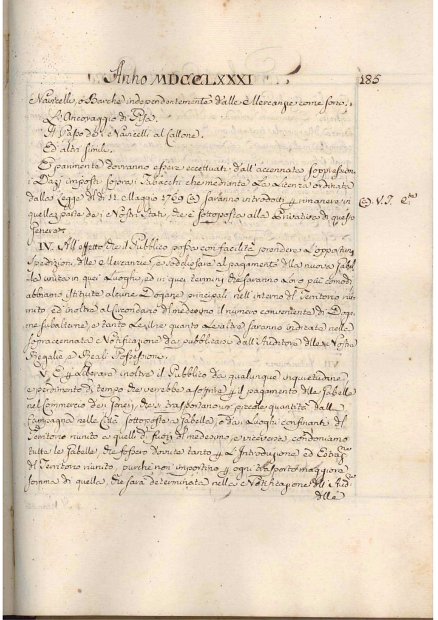 Anno MDCCLXXXI 185
Navicelli, o Barche independentemente dalle Mercanzie come sono,
L'Ancoraggio di Pisa.
Il Passo dei Navicelli al Callone.
Ed altri simili.
E parimente dovranno essere eccettuati dall'accennata soppressione
i Dazi imposti sopra i Tabacchi che mediante La Licenza ordinata
dalla Legge di 11. Maggio 1769 (a) saranno introdotti per rimanere in
quella parte dei Nostri Stati, che è sottoposta alla privativa di questo
Genere. (a) V. T.
IV. All'effetto che il Pubblico possa con facilità prendere L'opportune
spedizioni delle Mercanzie, e sodisfare al pagamento della nuova Gabel
la unita in quei Luoghi, ed in quei termini che saranno Loro più comodi
abbiamo istituite alcune Dogane principali nell'interno del Territorio riu
nito ed inoltre al Circondario del medesimo il numero conveniente di Doga
ne subalterne, e tanto Le une quanto Le altre saranno indicate nella
sopraccennata Notificazione da pubblicarsi dall'Auditore delle Nostre
Regalie, e Reali Possessioni.
V. E per liberare inoltre il Pubblico da qualunque inquietudine,
e perdimento di tempo che verrebbe a soffrire per il pagamento delle Gabelle
nel Commercio dei Generi, che si trasportano in piccole quantità dalla
Campagna nelle Città sottoposte a Gabella, o dai Luoghi confinanti del
Territorio riunito a quelli di fuori del medesimo, e viceversa, condoniamo
tutte le Gabelle, che fossero dovute tanto per L'Introduzione, ed Estraz.ne
del Territorio riunito, purchè non importino per ogni trasporto maggiore
somma di quella, che sarà determinata nella Notificazione dell'Aud.
delle